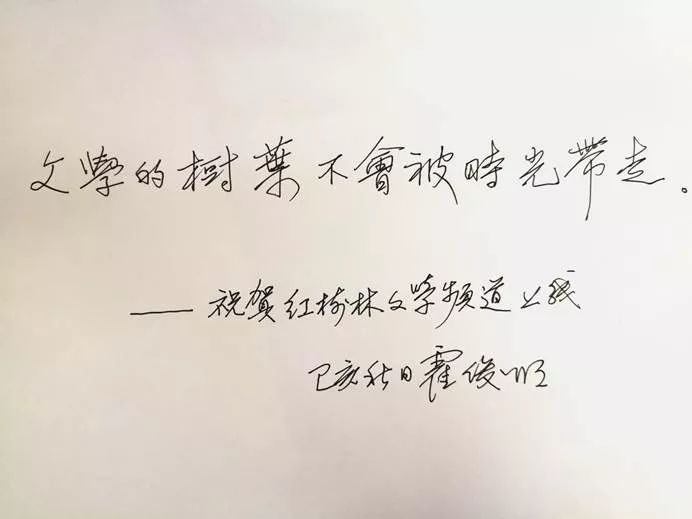 文學的樹葉不會被時光帶走。
——祝贺红树林文学频道上线
己亥秋日霍俊明